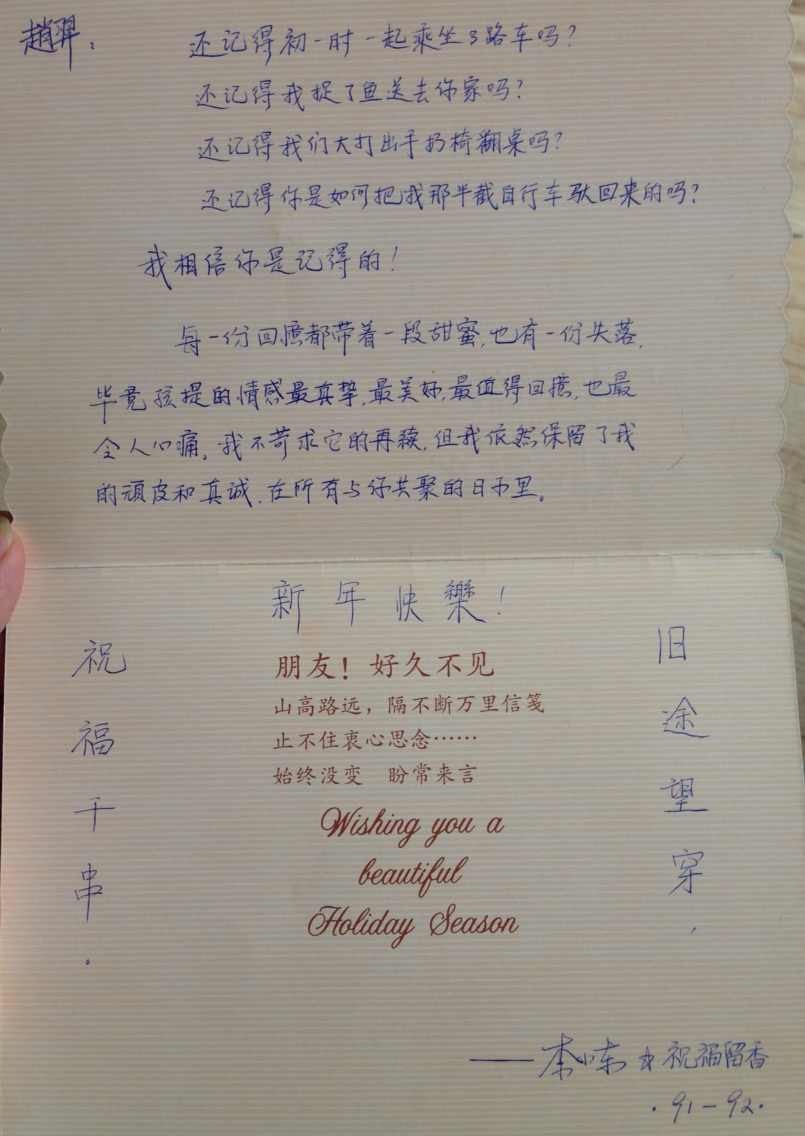 趙羿：
还记得初一时一起乘坐3路车吗？
还记得我捉了鱼送去你家吗？
还记得我们大打出手扔椅翻桌吗？
还记得你是如何把我那半截自行车驮回来的吗？
我相信你是记得的！
每一份回憶都带着一段甜蜜，也有一份失落，
毕竟孩提的情感最真挚，最美好，最值得回憶，也最
令人心痛，我不苛求它的再续，但我依然保留了我
的顽皮和真诚，在所有与你共聚的日子里。
新年快樂！
旧途望穿，
祝福千串。
朋友！好久不见
山高路远，隔不断万里信笺
止不住衷心思念……
始终没变 盼常来言
Wishing you a
beautiful
Holiday Season
——李小东 祝福留香
·91－92·